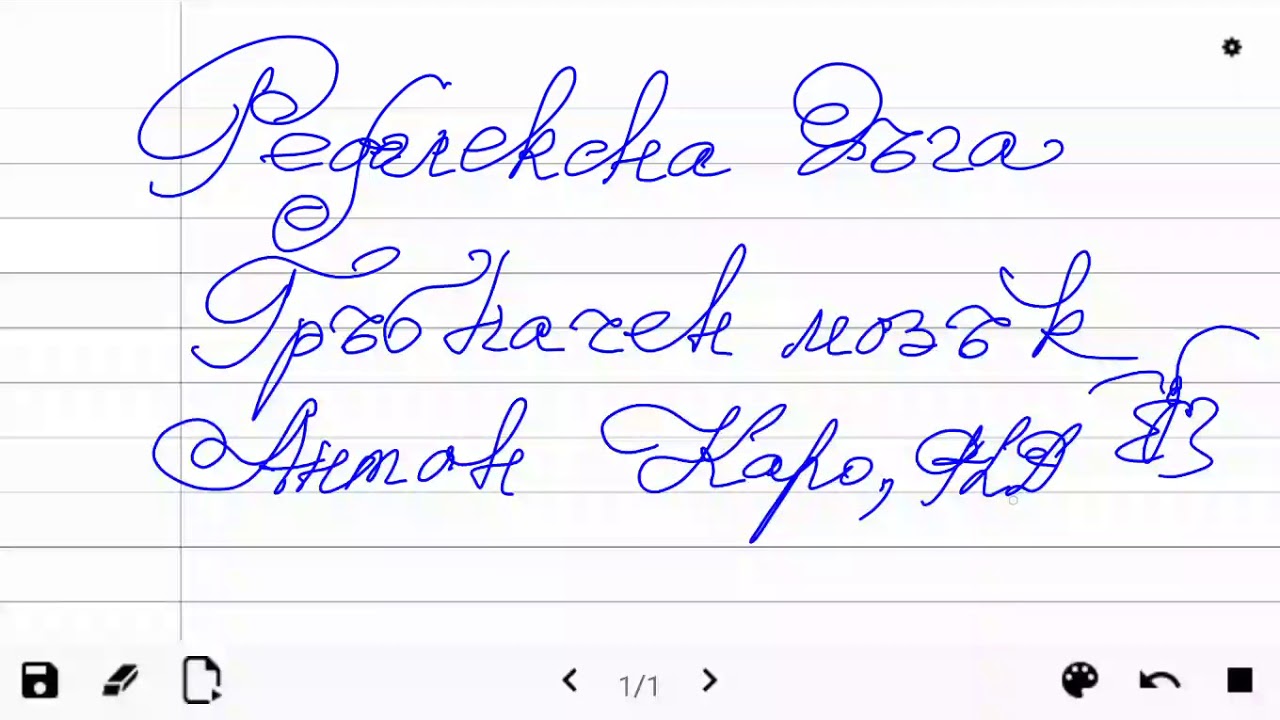 Рефлексна Дъга
Гръбначен мозък
Антон Каро,
1/1